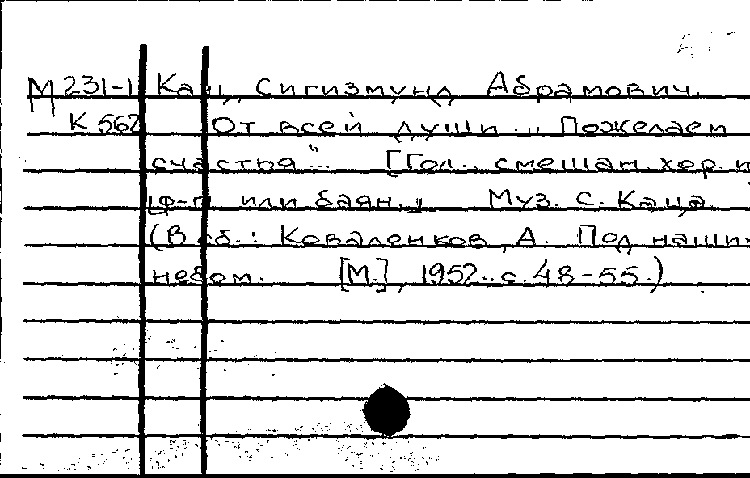 М 231-1 Кац, Сигизмунд Абрамович.
К 562 От всей души... "Пожелаем
счастья".. [Гол., смешан. хор и
ф-п или баян.] Муз. С. Каца.
(В сб.: Коваленков, А. Под наши
небом. [М.], 1952. с. 48-55.)